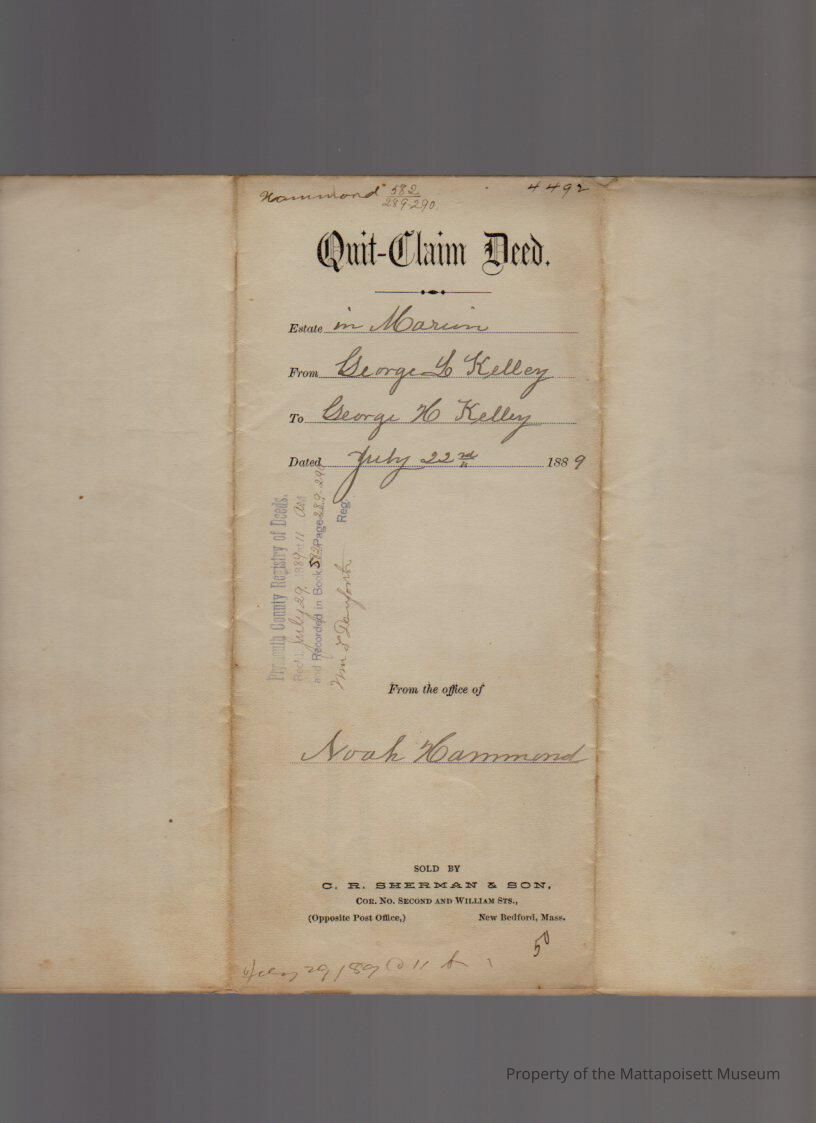 Hammond 582 4492
289-290
Quit-Claim Deed.
Estate in Marion
From George L Kelley
To George H Kelley
Dated July 22nd 1889
Plymouth County Registry of Deeds.
Rec'd July 29 1889 at 11 AM
and Recorded in Book 582 Page 289-290
Wm S Danforth Reg.
From the office of
Noah Hammond
SOLD BY
C. R. SHERMAN & SON,
COR. NO. SECOND AND WILLIAM STS.,
(Opposite Post Office,) New Bedford, Mass.
50
July 29/89 @ 11 A
Property of the Mattapoisett Museum